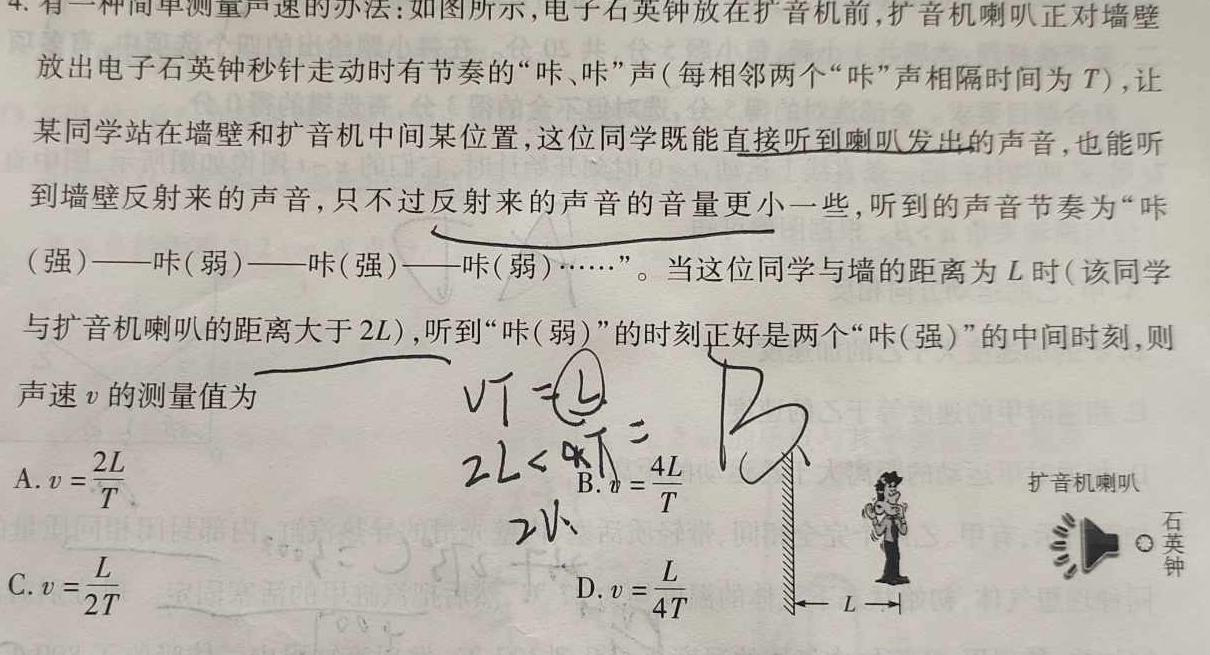 4. 有一种简单测量声速的办法:如图所示,电子石英钟放在扩音机前,扩音机喇叭正对墙壁
放出电子石英钟秒针走动时有节奏的“咔、咔”声(每相邻两个“咔”声相隔时间为 T),让
某同学站在墙壁和扩音机中间某位置,这位同学既能直接听到喇叭发出的声音,也能听
到墙壁反射来的声音,只不过反射来的声音的音量更小一些,听到的声音节奏为“咔
(强)——咔(弱)——咔(强)——咔(弱)……”。当这位同学与墙的距离为 L 时(该同学
与扩音机喇叭的距离大于 2L),听到“咔(弱)”的时刻正好是两个“咔(强)”的中间时刻,则
声速 v 的测量值为
VT = L
A. v = 2L/T
B. v = 4L/T
C. v = L/2T
D. v = L/4T
扩音机喇叭
石英钟
L